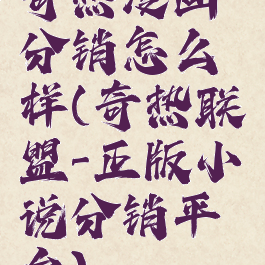 奇热漫画
分销怎么
样(奇热联
盟-正版小
说分销平
台)